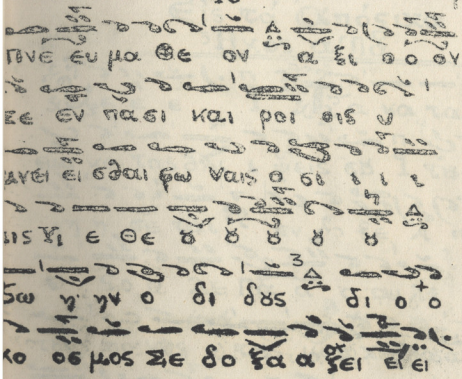 πνε ευ μα Θε ον α ξι ο ο ον
σε εν πασι και ροι οις υ
μνει ει σθαι φω ναις ο σι ι ι ι
αις Υι ε Θε ȣ ȣ ȣ ȣ ȣ
ζω η ην ο δι δȣς δι ο ο
κο οσ μος Σε δο ξα α ζει ει ει